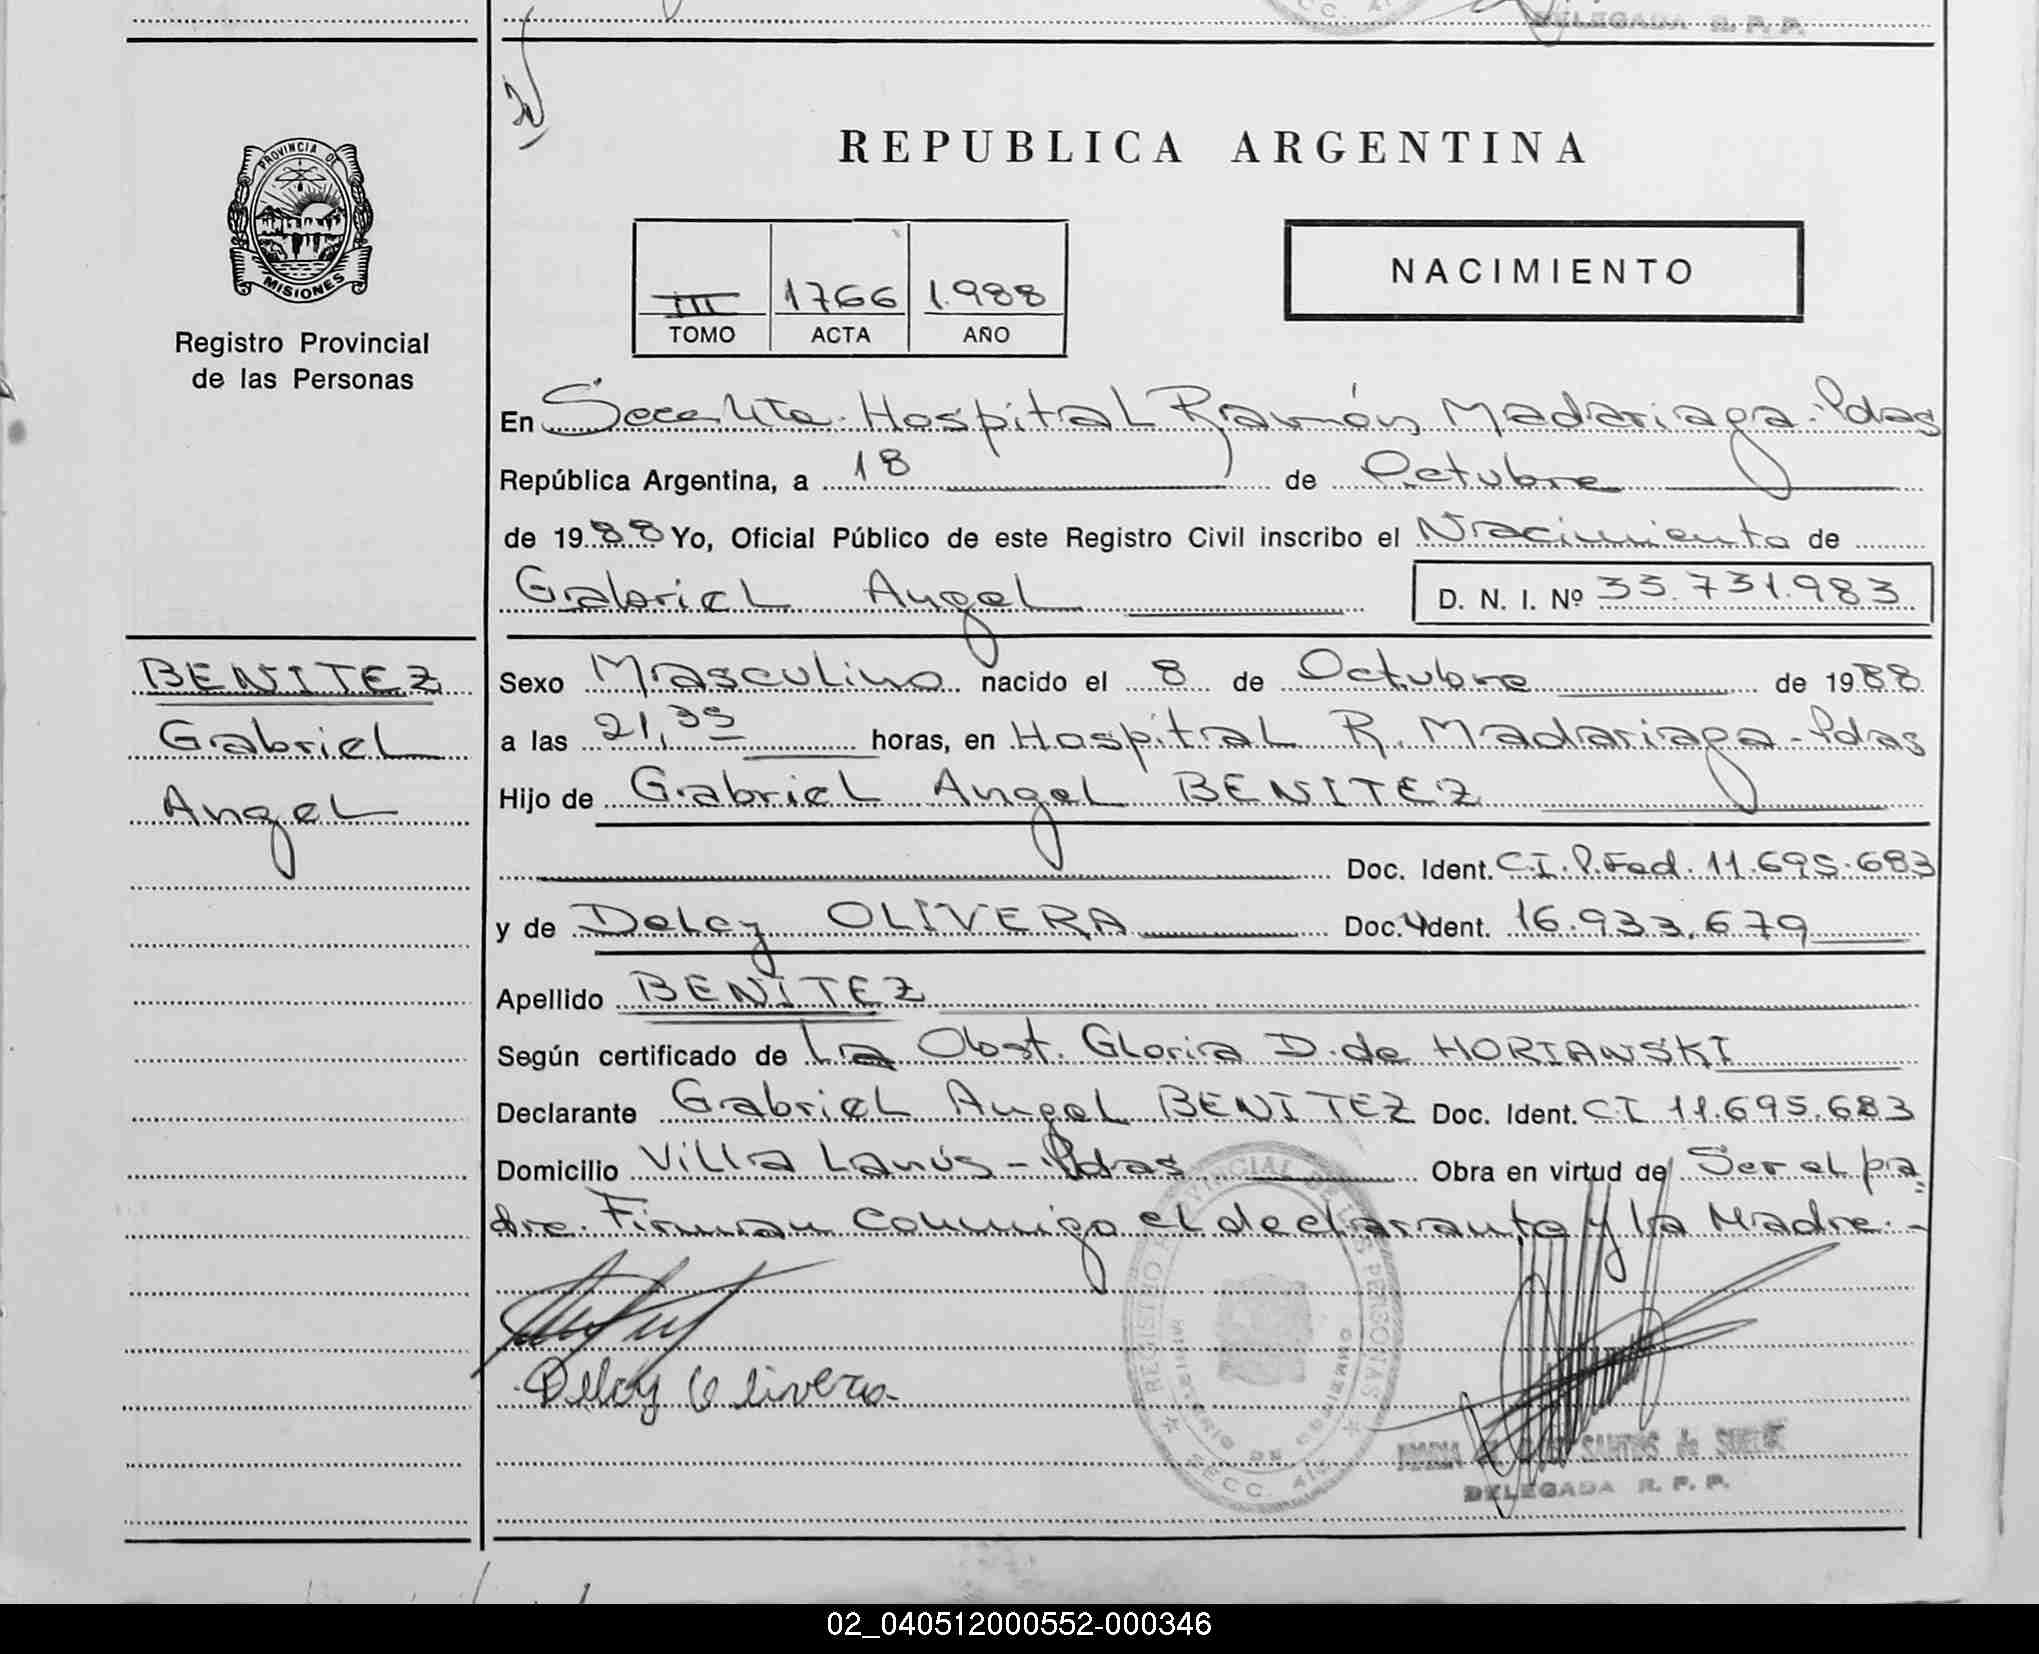 DELEGADA R. P. P.
REPUBLICA ARGENTINA
PROVINCIA DE
MISIONES
Registro Provincial
de las Personas
III 1766 1.988
TOMO ACTA AÑO
NACIMIENTO
En Hospital Ramón Madariaga-Pdas
República Argentina, a 18 de Octubre
de 1988 Yo, Oficial Público de este Registro Civil inscribo el Nacimiento de
Gabriel Angel D. N. I. Nº 33.731.983
BENITEZ
Gabriel
Angel
Sexo Masculino nacido el 8 de Octubre de 1988
a las 21,35 horas, en Hospital R. Madariaga-Pdas
Hijo de Gabriel Angel BENITEZ
Doc. Ident. C.I.P.Fed. 11.695.683
y de Delcy OLIVERA Doc. Ident. 16.933.679
Apellido BENITEZ
Según certificado de La Obst. Gloria D. de HORIANSKI
Declarante Gabriel Angel BENITEZ Doc. Ident. C.I 11.695.683
Domicilio Villa Lanús-Pdas Obra en virtud de Ser el pa
dre. Firman conmigo el declarante y la Madre.-
Delcy Olivera
REGISTRO PROVINCIAL DE LAS PERSONAS
MINISTERIO DE GOBIERNO
SECC.
SANTOS de
DELEGADA R. P. P.
02_040512000552-000346